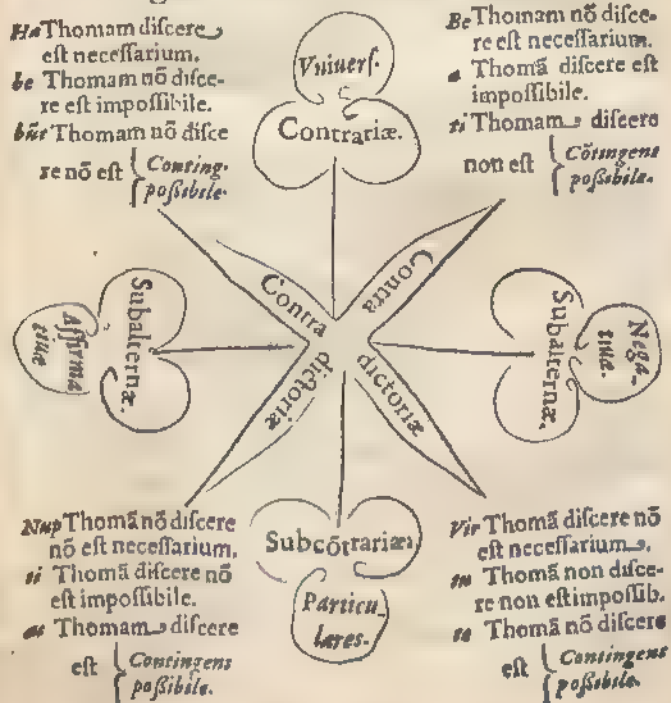 Ha Thomam diſcere
eſt neceſſarium.
be Thomam nõ diſce-
re eſt impoſſibile.
būt Thomam nõ diſce
re nõ eſt { Conting.
poſsibile.
Be Thomam nõ diſce-
re eſt neceſſarium.
a Thomã diſcere eſt
impoſſibile.
ti Thomam diſcere
non eſt { Cõtingens
poſsibile.
Vniuerſ.
Contrariæ.
Contra
dictoriæ
Contra
dictoriæ
Subalternæ.
Affirma
tiuæ
Subalternæ.
Nega-
tiuæ.
Subcõtrariæ
Particu-
lares.
Nup Thomã nõ diſcere
nõ eſt neceſſarium.
ti Thomã diſcere nõ
eſt impoſſibile.
Thomam diſcere
eſt { Contingens
poſsibile.
Vir Thomã diſcere nõ
eſt neceſſarium.
tu Thomã non diſce-
re non eſt impoſſib.
te Thomã nõ diſcere
eſt { Contingens
poſsibile.